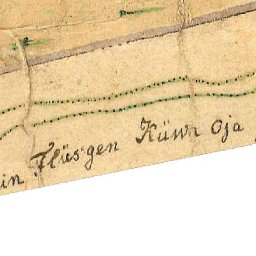 in Flüsgen Küwi Oja